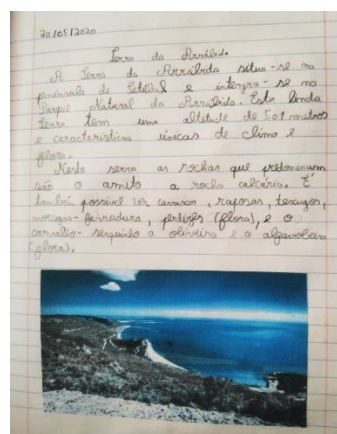 20/05/2020
Serra da Arrábida
A Serra da Arrábida situa-se na
península de Setúbal e integra-se no
Parque Natural da Arrábida. Esta linda
Serra tem uma altitude de 501 metros
e características únicas de clima e
flora.
Nesta serra as rochas que predominam
são o arnito a rocha calcária. É
também possível ver , raposas, texugos,
morcego-ferradura, perdizes (flora), e o
carvalho- a oliveira e a alfarrobeira
(flora).